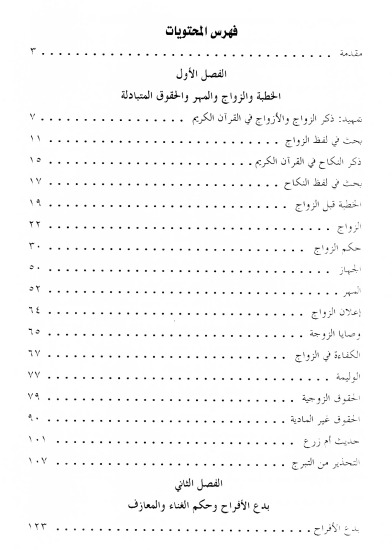 فهرس المحتويات
مقدمة . . . . . . . . . . . . . . . . . . . . ٣
الفصل الأول
الخطبة والزواج والمهر والحقوق المتبادلة
تمهيد: ذكر الزواج والأزواج في القرآن الكريم . . . . . . . . . . ٧
بحث في لفظ الزواج . . . . . . . . . . . . . . . . . . . . ١١
ذكر النكاح في القرآن الكريم . . . . . . . . . . . . . . . . . . . . ١٥
بحث في لفظ النكاح . . . . . . . . . . . . . . . . . . . . ١٧
الخطبة قبل الزواج . . . . . . . . . . . . . . . . . . . . ١٩
الزواج . . . . . . . . . . . . . . . . . . . . ٢٢
حكم الزواج . . . . . . . . . . . . . . . . . . . . ٣٠
الجهاز . . . . . . . . . . . . . . . . . . . . ٥٠
المهر . . . . . . . . . . . . . . . . . . . . ٥٢
إعلان الزواج . . . . . . . . . . . . . . . . . . . . ٦٤
وصايا الزوجة . . . . . . . . . . . . . . . . . . . . ٦٥
الكفاءة في الزواج . . . . . . . . . . . . . . . . . . . . ٦٧
الوليمة . . . . . . . . . . . . . . . . . . . . ٧٧
الحقوق الزوجية . . . . . . . . . . . . . . . . . . . . ٧٩
الحقوق غير المادية . . . . . . . . . . . . . . . . . . . . ٩٠
حديث أم زرع . . . . . . . . . . . . . . . . . . . . ١٠١
التحذير من التبرج . . . . . . . . . . . . . . . . . . . . ١٠٧
الفصل الثاني
بدع الأفراح وحكم الغناء والمعازف
بدع الأفراح . . . . . . . . . . . . . . . . . . . . ١٢٣